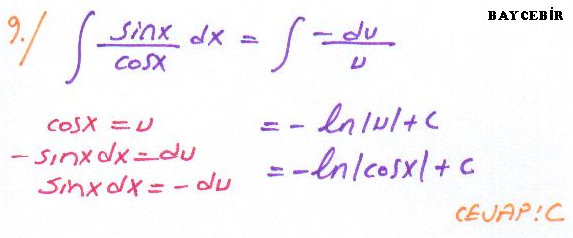 BAYCEBİR
9./ ∫ sinx/cosx dx = ∫ -du/u
cosx = u
-sinxdx = du
sinxdx = -du
= - ln|u| + c
= -ln|cosx| + c
CEVAP: C